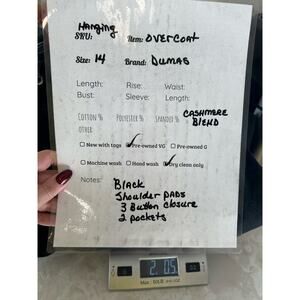 Hanging
SKU: Item: OVERCOAT
Size: 14 Brand: DUMAS
Length: Rise: Waist:
Bust: Sleeve: Length:
COTTON % POLYESTER % SPANDEX % CASHMERE BLEND
OTHER:
New with tags ✓Pre-owned VG Pre-owned G
Machine wash Hand wash ✓Dry clean only
Notes: BLACK
Shoulder PADS
3 Button closure
2 pockets
2 0.5
Max: 50LB